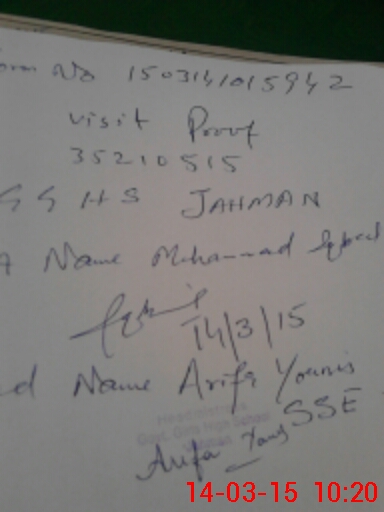 orm No 150314015942
visit Proof
35210515
GGHS JAHMAN
A Name Muhammad Iqbal
14/3/15
d Name Arifa Younis
SSE
Headmistress
Govt. Girls High School
Arifa Younis
14-03-15 10:20